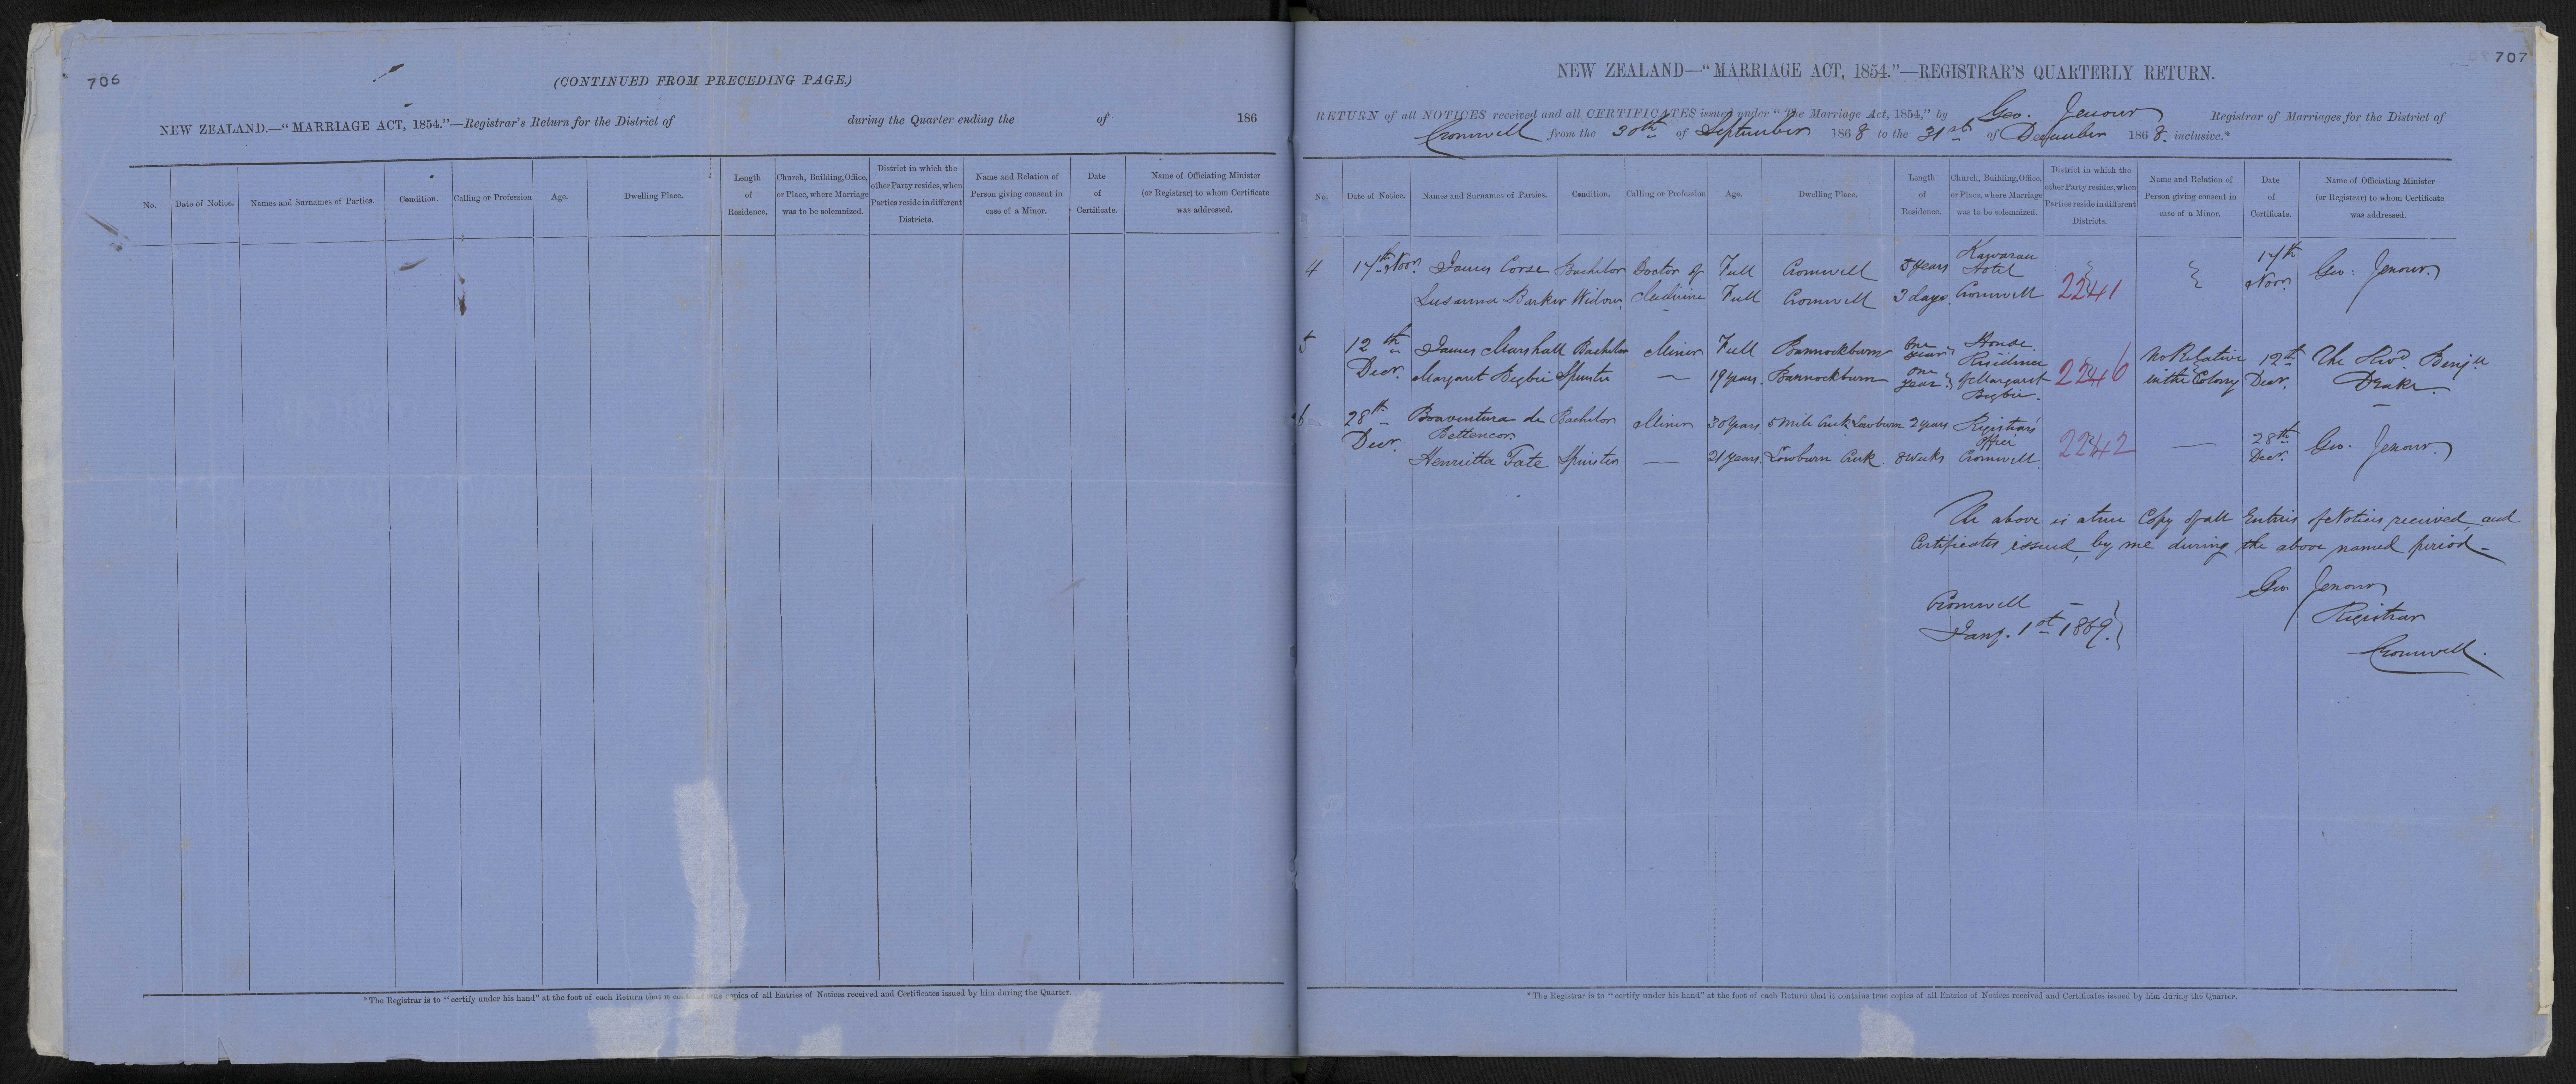 706
(CONTINUED FROM PRECEDING PAGE.)
NEW ZEALAND.—“MARRIAGE ACT, 1854.”—Registrar's Return for the District of during the Quarter ending the of 186
No.
Date of Notice.
Names and Surnames of Parties.
Condition.
Calling or Profession
Age.
Dwelling Place.
Length
of
Residence.
Church, Building, Office,
or Place, where Marriage
was to be solemnized.
District in which the
other Party resides, when
Parties reside in different
Districts.
Name and Relation of
Person giving consent in
case of a Minor.
Date
of
Certificate.
Name of Officiating Minister
(or Registrar) to whom Certificate
was addressed.
*The Registrar is to “certify under his hand” at the foot of each Return that it contains true copies of all Entries of Notices received and Certificates issued by him during the Quarter.
707
NEW ZEALAND—“MARRIAGE ACT, 1854.”—REGISTRAR'S QUARTERLY RETURN.
RETURN of all NOTICES received and all CERTIFICATES issued under “The Marriage Act, 1854,” by Geo. Jenour Registrar of Marriages for the District of
Cromwell from the 30th of September 1868 to the 31st of December 1868. inclusive.*
No.
Date of Notice.
Names and Surnames of Parties.
Condition.
Calling or Profession
Age.
Dwelling Place.
Length
of
Residence.
Church, Building, Office,
or Place, where Marriage
was to be solemnized.
District in which the
other Party resides, when
Parties reside in different
Districts.
Name and Relation of
Person giving consent in
case of a Minor.
Date
of
Certificate.
Name of Officiating Minister
(or Registrar) to whom Certificate
was addressed.
4 17th Novr. James Corse Bachelor Doctor of Full Cromwell 5 years Kawarau Hotel 17th Novr. Geo. Jenour
Susanna Barker Widow Medicine Full Cromwell 3 days Cromwell 2241
5 12th Decr. James Marshall Bachelor Miner Full Bannockburn One year House Residence No Relative 12th The Revd. Benjn
Margaret Begbie Spinster — 19 years. Bannockburn One year of Margaret Begbie. 2246 in the Colony Decr. Drake.
6 28th Decr. Bonaventura de Bettencor Bachelor Miner 30 years 5 Mile Creek Lowburn 2 years Registrar's Office 28th Decr. Geo. Jenour
Henrietta Tate Spinster — 21 years. Lowburn Creek. 8 weeks Cromwell. 2242 —
The above is a true Copy of all Entries of Notices received, and
Certificates issued, by me during the above named period—
Geo. Jenour
Registrar
Cromwell.
Cromwell
Jany. 1st 1869.
*The Registrar is to “certify under his hand” at the foot of each Return that it contains true copies of all Entries of Notices received and Certificates issued by him during the Quarter.